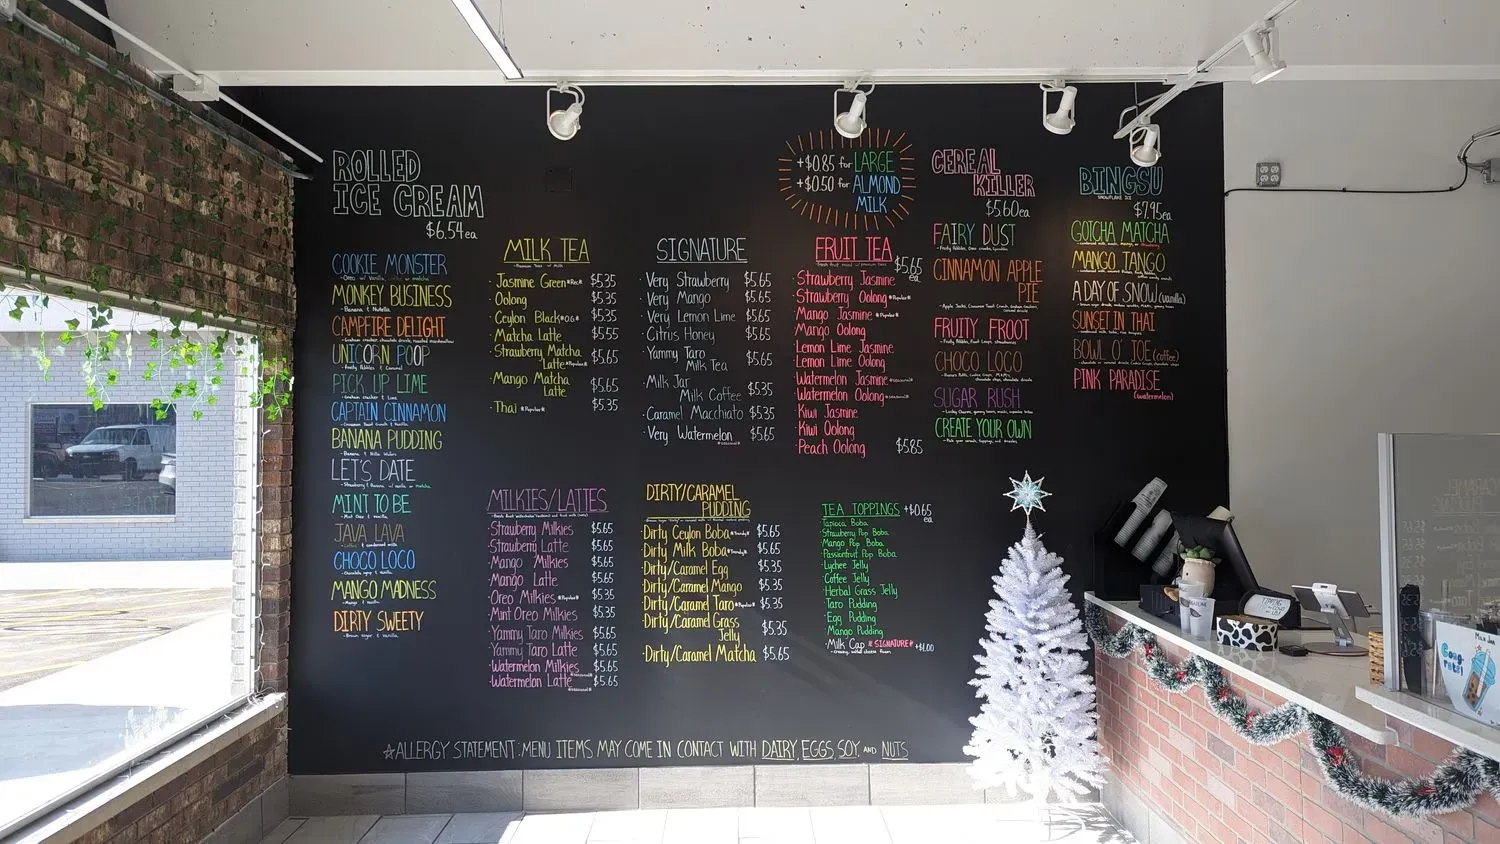 ROLLED
ICE CREAM
$6.54ea
COOKIE MONSTER
MONKEY BUSINESS
-Banana & Nutella
CAMPFIRE DELIGHT
UNICORN POOP
-Fruity Pebbles & Caramel
PICK UP LIME
-Graham cracker & Lime
CAPTAIN CINNAMON
-Cinnamon Toast Crunch & Vanilla
BANANA PUDDING
-Banana & Nilla Wafers
LET'S DATE
-Strawberry & Banana w/ vanilla or matcha
MINT TO BE
-Mint Oreo & Vanilla
JAVA LAVA
-Coffee & condensed milk
CHOCO LOCO
-Chocolate syrup & Vanilla
MANGO MADNESS
-Mango & Vanilla
DIRTY SWEETY
-Brown Sugar & Vanilla
MILK TEA
-Premium Teas w/ Milk
·Jasmine Green *Rec* $5.35
·Oolong $5.35
·Ceylon Black *OG* $5.35
·Matcha Latte $5.55
·Strawberry Matcha
Latte *Popular* $5.65
·Mango Matcha
Latte $5.65
·Thai *Popular* $5.35
SIGNATURE
·Very Strawberry $5.65
·Very Mango $5.65
·Very Lemon Lime $5.65
·Citrus Honey $5.65
·Yammy Taro
Milk Tea $5.65
·Milk Jar
Milk Coffee $5.35
·Caramel Macchiato $5.35
·Very Watermelon $5.65
*SEASONAL*
+$0.85 for LARGE
+$0.50 for ALMOND
MILK
FRUIT TEA
$5.65
ea
·Strawberry Jasmine
·Strawberry Oolong *Popular*
·Mango Jasmine *Popular*
·Mango Oolong
·Lemon Lime Jasmine
·Lemon Lime Oolong
·Watermelon Jasmine *SEASONAL*
·Watermelon Oolong *SEASONAL*
·Kiwi Jasmine
·Kiwi Oolong
·Peach Oolong $5.85
CEREAL
KILLER
$5.60ea
FAIRY DUST
CINNAMON APPLE
PIE
-Apple Jacks, Cinnamon Toast Crunch, Graham Crackers,
caramel drizzle
FRUITY FROOT
-Fruity Pebbles, Froot Loops, strawberries
CHOCO LOCO
SUGAR RUSH
CREATE YOUR OWN
BINGSU
SNOWFLAKE ICE
$7.95ea
GOTCHA MATCHA
MANGO TANGO
A DAY OF SNOW (vanilla)
SUNSET IN THAI
BOWL O' JOE (coffee)
PINK PARADISE
(watermelon)
MILKIES/LATTES
·Strawberry Milkies $5.65
·Strawberry Latte $5.65
·Mango Milkies $5.65
·Mango Latte $5.65
·Oreo Milkies *Popular* $5.35
·Mint Oreo Milkies $5.35
·Yammy Taro Milkies $5.65
·Yammy Taro Latte $5.65
·Watermelon Milkies *SEASONAL* $5.65
·Watermelon Latte $5.65
*SEASONAL*
DIRTY/CARAMEL
PUDDING
·Dirty Ceylon Boba *Trendy* $5.65
·Dirty Milk Boba *Trendy* $5.65
·Dirty/Caramel Egg $5.35
·Dirty/Caramel Mango $5.35
·Dirty/Caramel Taro *Popular* $5.35
·Dirty/Caramel Grass
Jelly $5.35
·Dirty/Caramel Matcha $5.65
TEA TOPPINGS +$0.65
ea
Tapioca Boba
·Strawberry Pop Boba
·Mango Pop Boba
·Passionfruit Pop Boba
·Lychee Jelly
·Coffee Jelly
·Herbal Grass Jelly
·Taro Pudding
·Egg Pudding
·Mango Pudding
·Milk Cap *SIGNATURE* +$1.00
-creamy, salted cheese foam
☆ALLERGY STATEMENT: MENU ITEMS MAY COME IN CONTACT WITH DAIRY, EGGS, SOY, AND NUTS